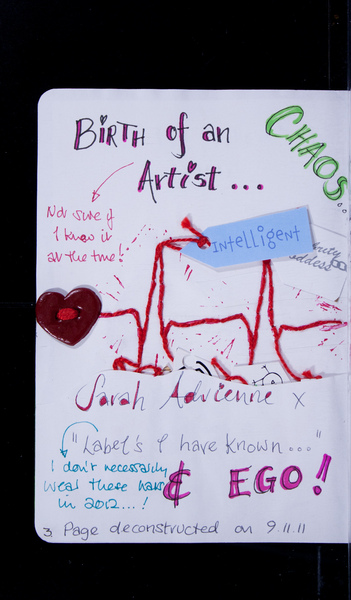 BiRTH of an
Artist...
CHAOS..
Not sure if
I knew it
at the time!
Intelligent
Sarah Adrienne x
"Label's I have known..."
I don't necessarily
wear these
in 2012...!
& EGO!
3. Page deconstructed on 9.11.11